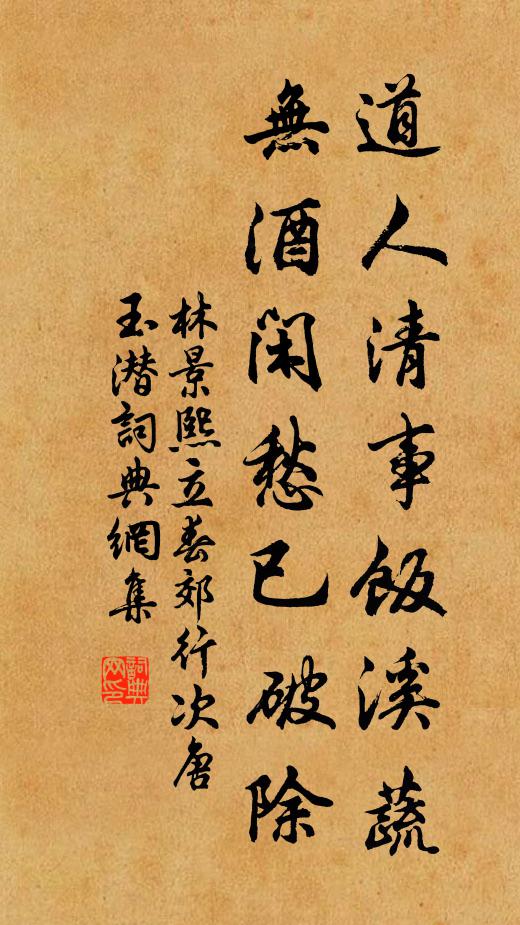 道人清事飯溪蔬
無酒閑愁已破除
林景熙立春郊行次唐
玉潜詞典網集
詞典網印